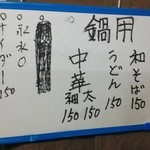 鍋用
和そば150
うどん150
中華 太150
細150
サイダー150